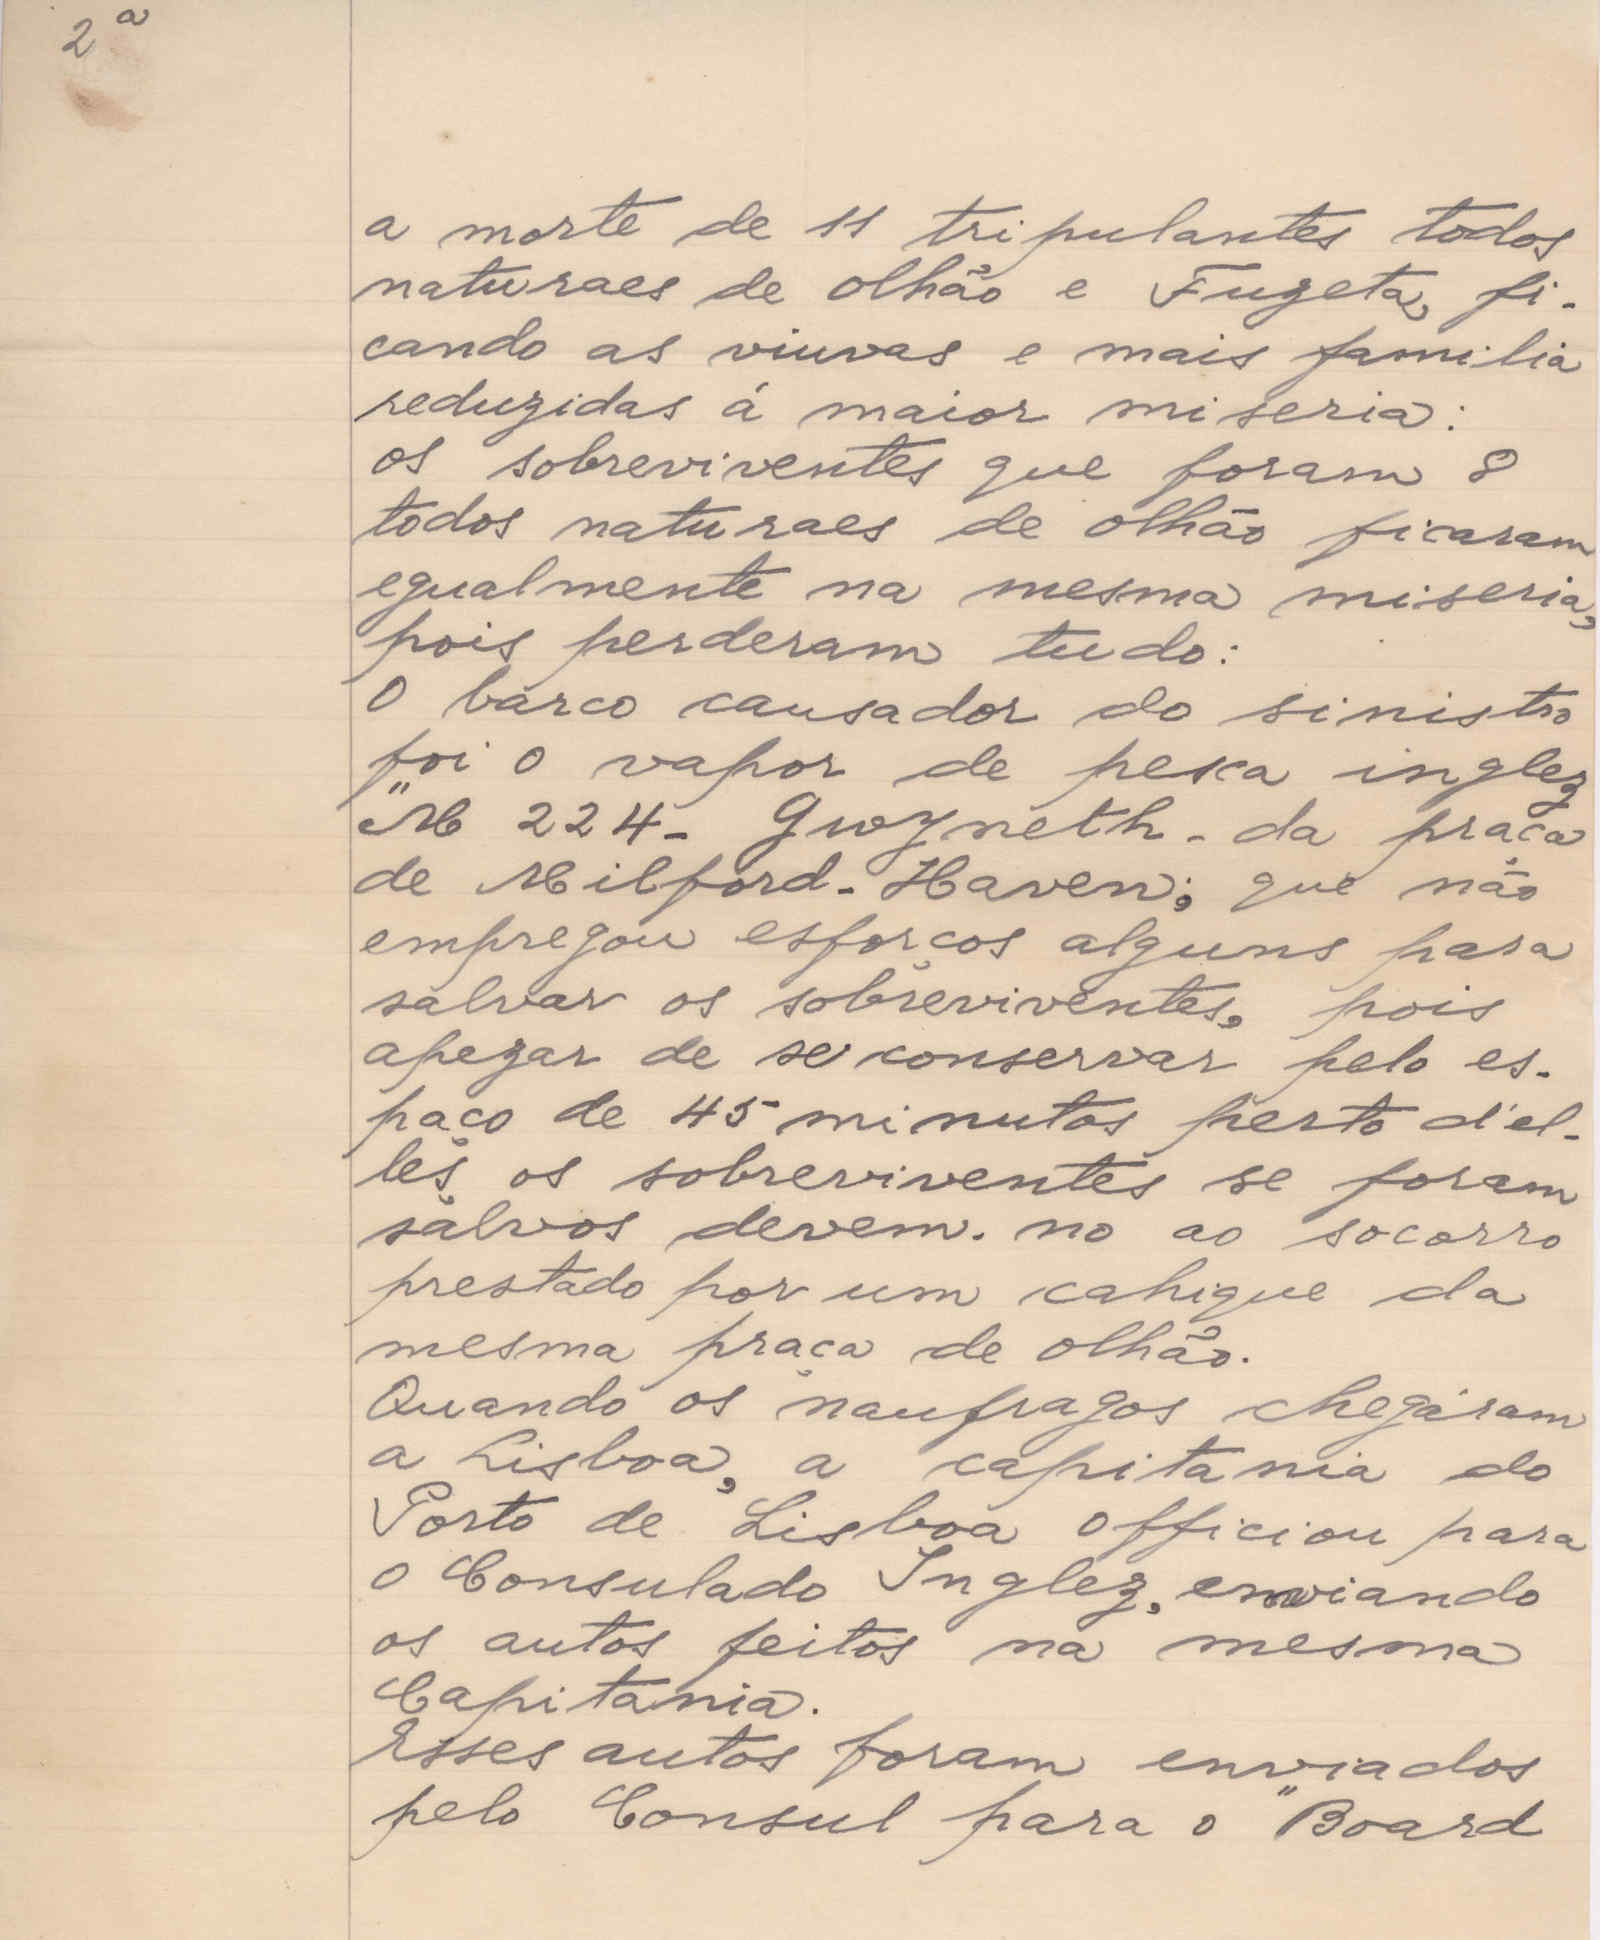 2ª
a morte de 11 tripulantes todos
naturaes de olhão e Fuzeta, fi-
cando as viuvas e mais familia
reduzidas á maior miseria:
os sobreviventes que foram 8
todos naturaes de olhão ficaram
egualmente na mesma miseria,
pois perderam tudo:
O barco causador do sinistro
foi o vapor de pesca inglez
"M 224- Gwyneth - da praça
de Milford-Haven; que não
empregou esforços alguns para
salvar os sobreviventes, pois
apezar de se conservar pelo es-
paço de 45 minutos perto d'el-
les os sobreviventes se foram
salvos devem-no ao socorro
prestado por um cahique da
mesma praça de olhão.
Quando os naufragos chegáram
a Lisboa, a capitania do
Porto de Lisboa officiou para
o Consulado Inglez, enviando
os autos feitos na mesma
Capitania.
Esses autos foram enviados
pelo Consul para o "Board